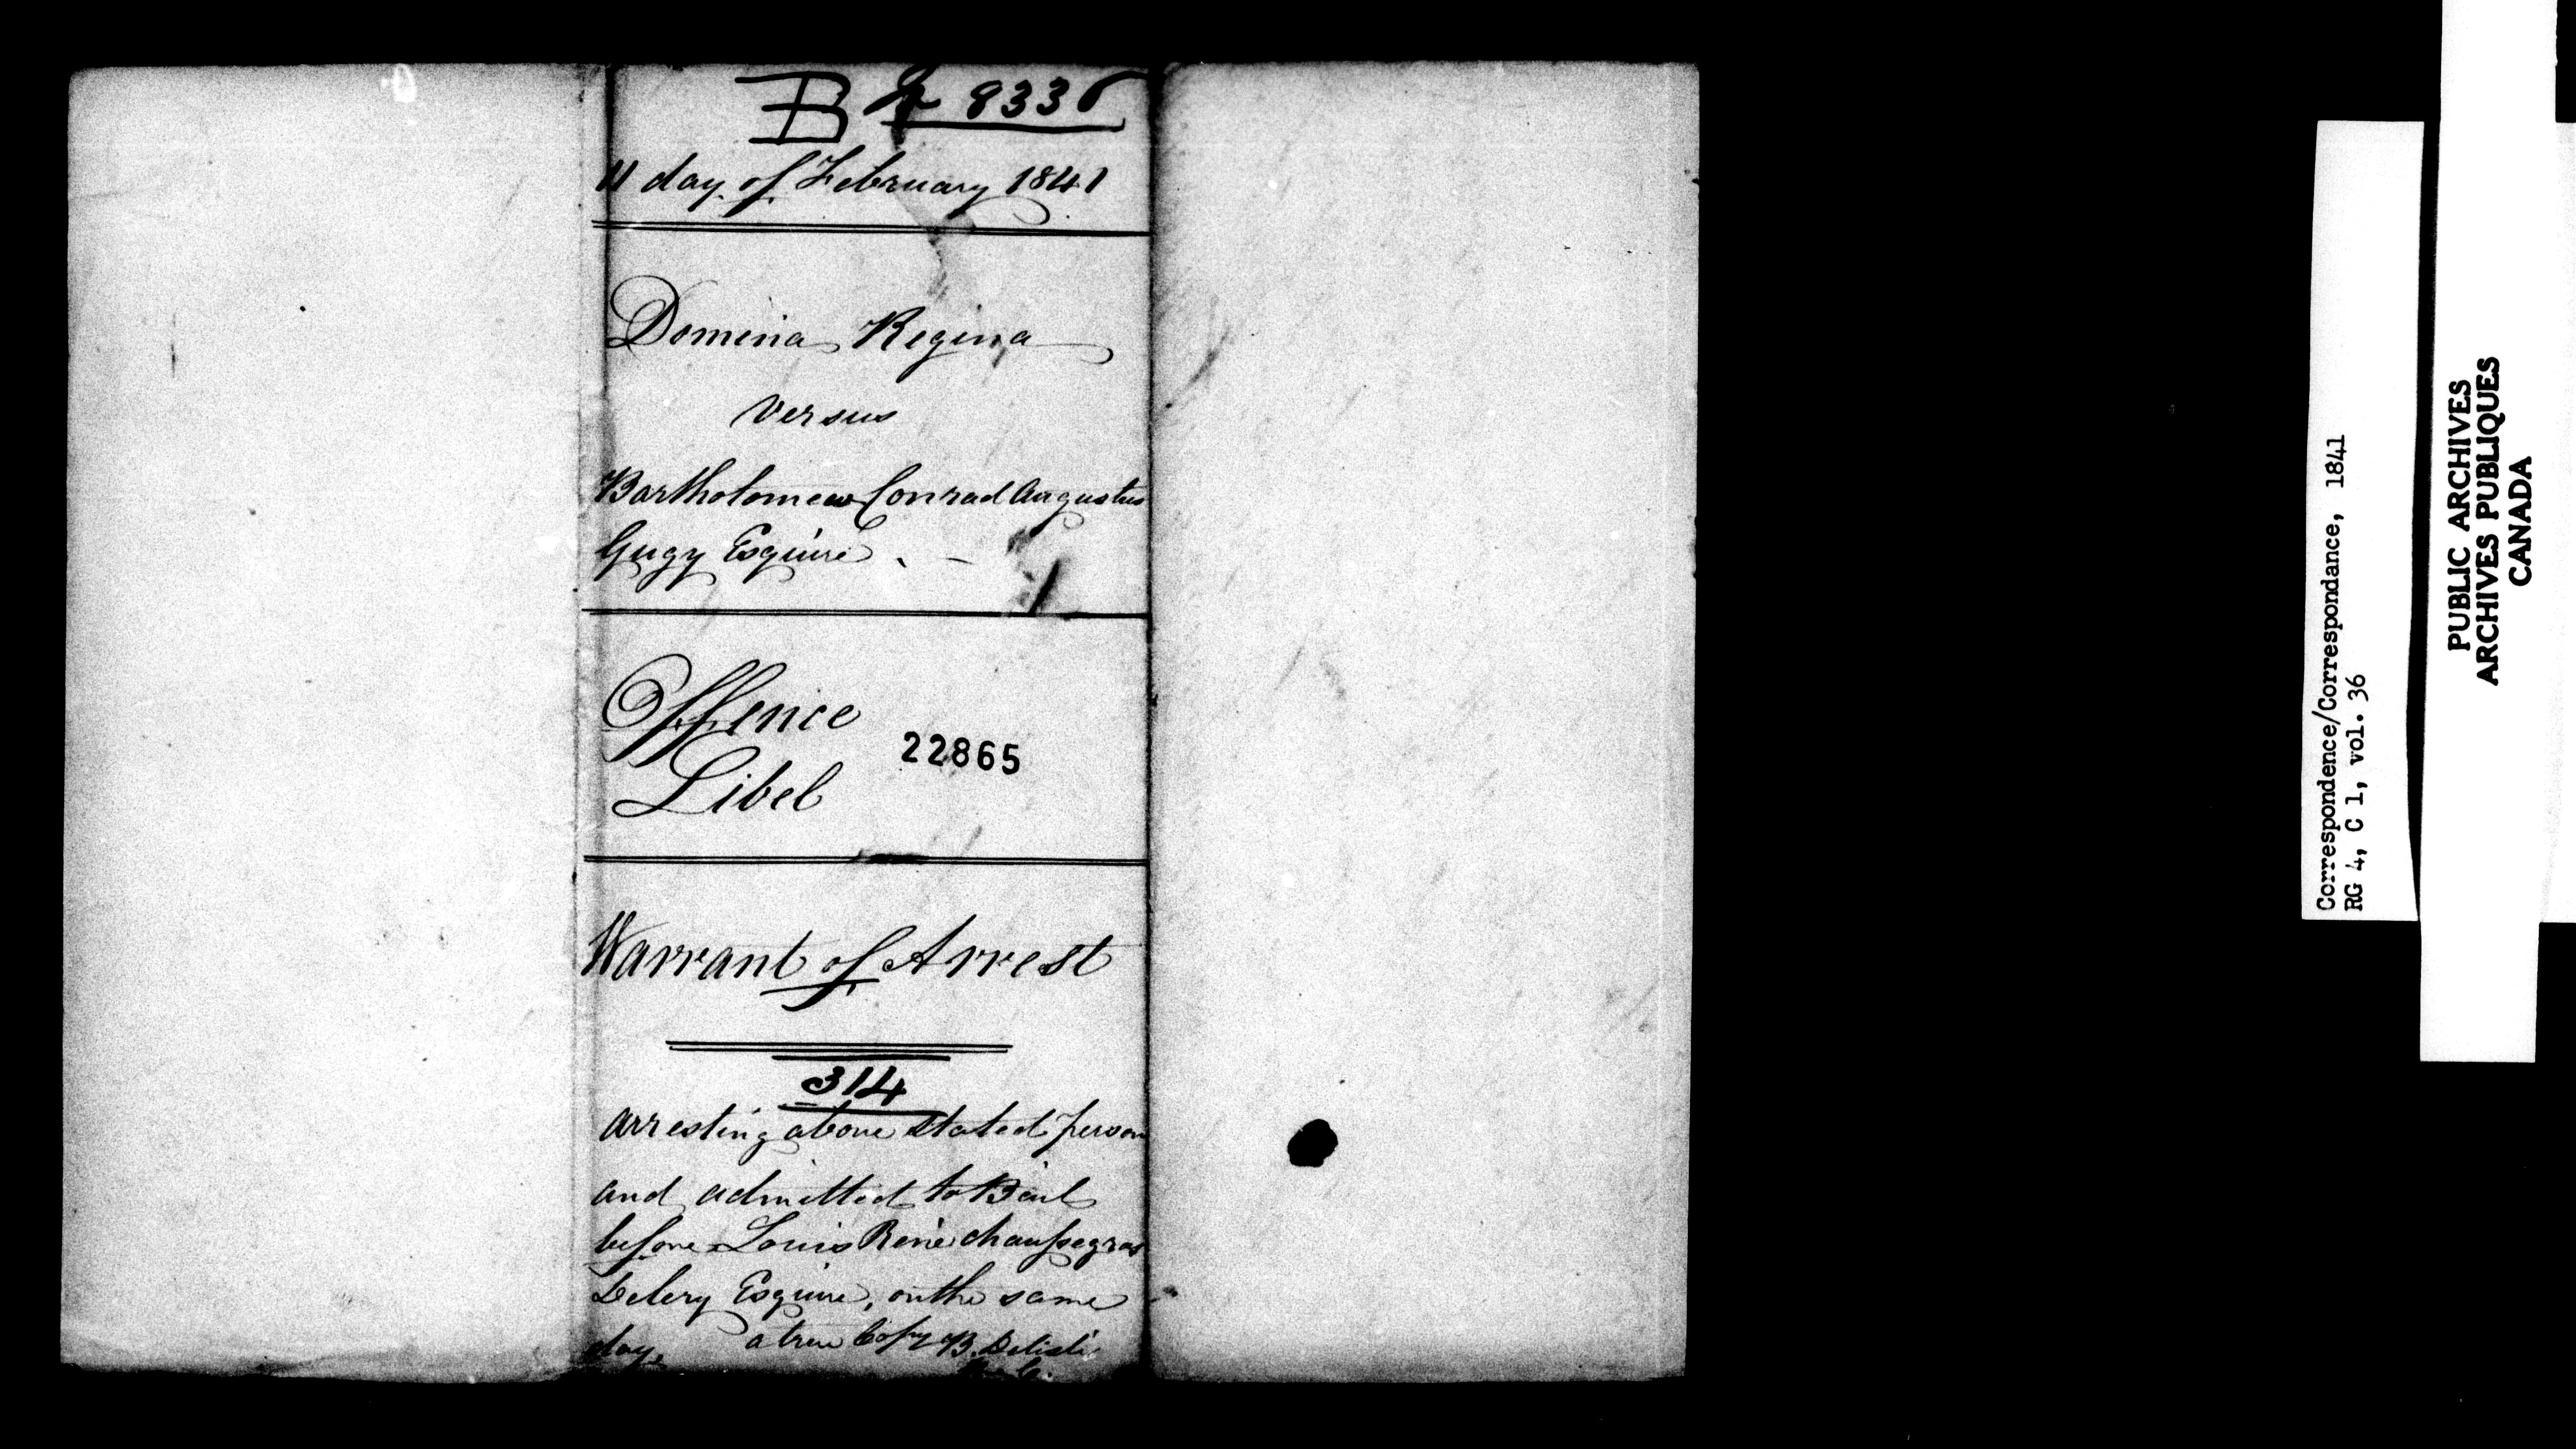 B 8336
11 day of February 1841
Domina Regina
versus
Bartholomew Conrad Augustus
Gugy Esquire
Offence
22865
Libel
Warrant of Arrest
314
arresting above stated person
and admitted to Bail
before Louis René chaussegros
Delery Esquire, on the same
day,
a true Copy B. Delisle
Correspondence/Correspondance, 1841
RG 4, C 1, vol. 36
PUBLIC ARCHIVES
ARCHIVES PUBLIQUES
CANADA